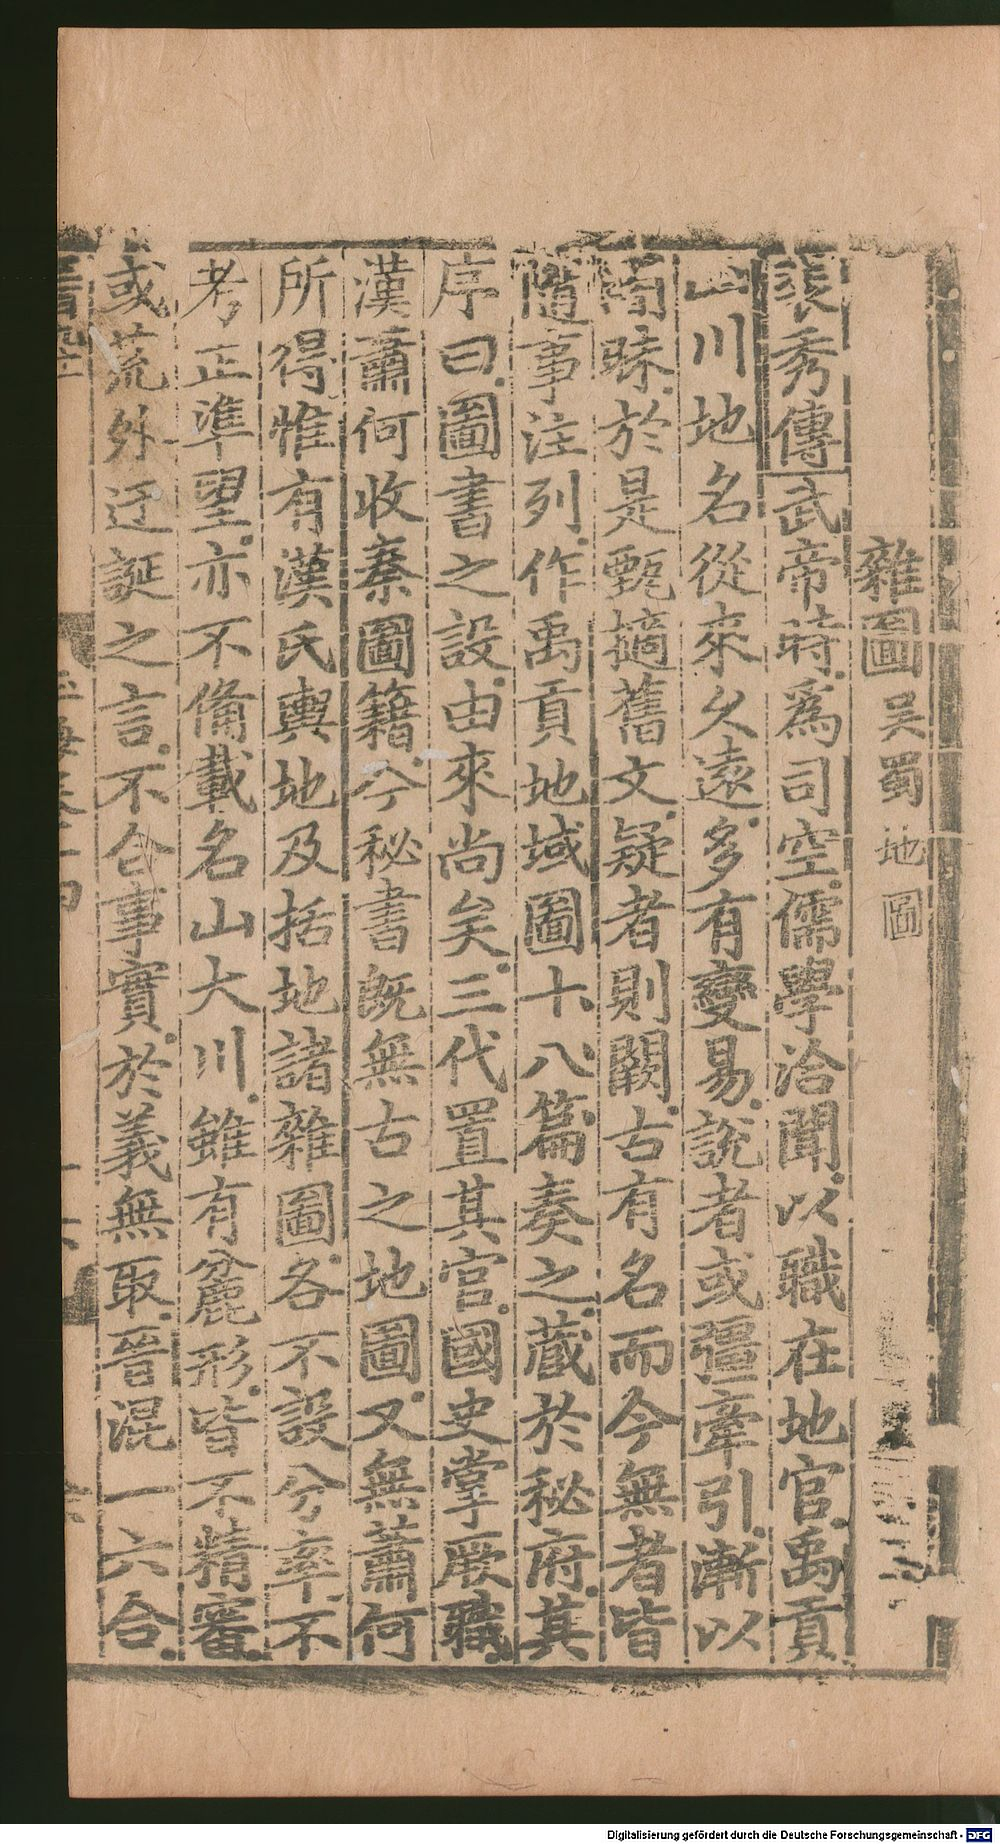 雜圖 吳蜀地圖
裴秀傳武帝時爲司空儒學洽聞以職在地官禹貢
山川地名從來久遠多有變易說者或彊牽引漸以
闇昧於是甄擿舊文疑者則闕古有名而今無者皆
隨事注列作禹貢地域圖十八篇奏之藏於秘府其
序曰圖書之設由來尚矣三代置其官國史掌厥職
漢蕭何收秦圖籍今秘書旣無古之地圖又無蕭何
所得惟有漢氏輿地及括地諸雜圖各不設分率不
考正準望亦不備載名山大川雖有麄形皆不精審
或荒外迂誕之言不合事實於義無取晉混一六合
Digitalisierung gefördert durch die Deutsche Forschungsgemeinschaft - DFG